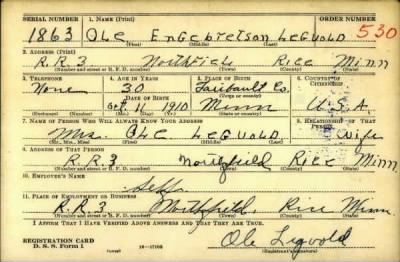 SERIAL NUMBER 1. NAME (Print) ORDER NUMBER
1863 Ole Engebretson Legvold 530
(First) (Middle) (Last)
2. ADDRESS (Print)
R.R.3 Northfield Rice Minn
(Number and street or R. F. D. number) (Town) (County) (State)
3. TELEPHONE 4. AGE IN YEARS 5. PLACE OF BIRTH 6. COUNTRY OF CITIZENSHIP
None 30 Faribault Co.
DATE OF BIRTH (Town or county)
Oct 11 1910 Minn U.S.A
(Exchange) (Number) (Mo.) (Day) (Yr.) (State or country)
7. NAME OF PERSON WHO WILL ALWAYS KNOW YOUR ADDRESS 8. RELATIONSHIP OF THAT PERSON
Mrs. Ole Legvold Wife
(Mr., Mrs., Miss) (First) (Middle) (Last)
9. ADDRESS OF THAT PERSON
R.R.3 Northfield Rice Minn.
(Number and street or R. F. D. number) (Town) (County) (State)
10. EMPLOYER'S NAME
Self
11. PLACE OF EMPLOYMENT OR BUSINESS
R.R.3 Northfield, Rice Minn.
(Number and street or R. F. D. number) (Town) (County) (State)
I AFFIRM THAT I HAVE VERIFIED ABOVE ANSWERS AND THAT THEY ARE TRUE.
REGISTRATION CARD
D. S. S. Form 1 16-17105 Ole Legvold
(Registrant's signature)